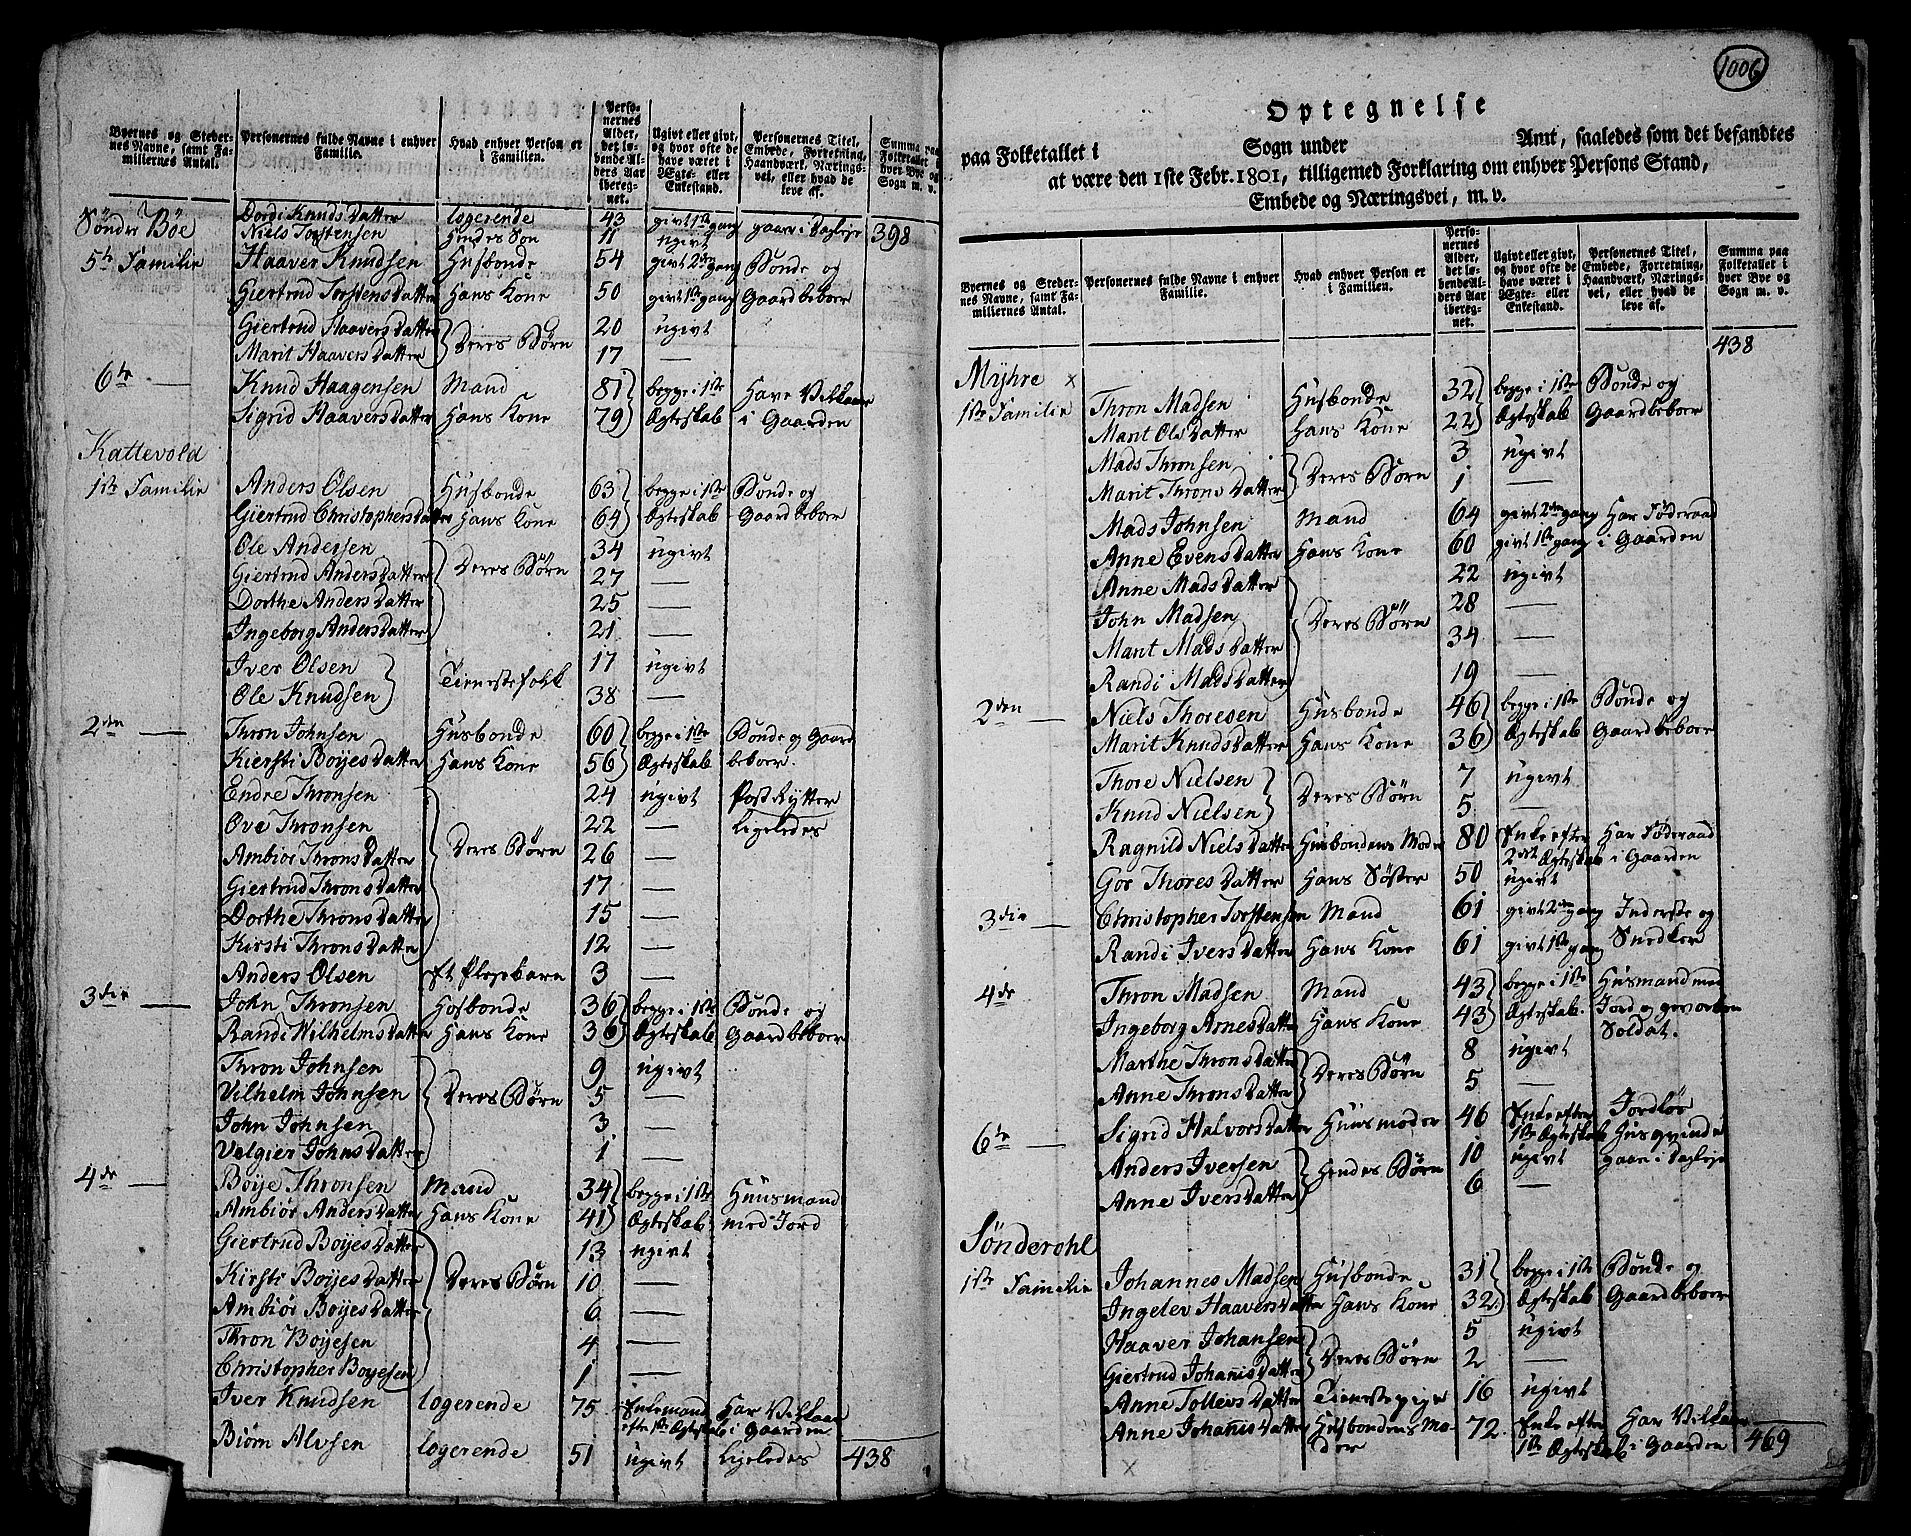 Byernes og Steder-
nes Navne, samt Fa-
miliernes Antal.
Personernes fulde Navne i enhver
Familie.
Hvad enhver Person er
i Familien.
Perso-
nernes
Alder,
det lø-
bende Al-
ders Aar
ibereg-
net.
Ugivt eller givt,
og hvor ofte de
have været i
Ægte- eller
Enkestand.
Personernes Titel,
Embede, Forretning,
Haandværk, Nærings-
vei, eller hvad de
leve af.
Summa paa
Folketallet i
hver Bye og
Sogn m. v.
Sönder Böe Dordi Knuds Datter logerende 43 givt 1ste gang gaaer i Dagleje 398
Niels Torstensen Hendes Søn 11 ugivt
5te Familie Haaver Knudsen Husbonde 54 givt 2den gang Bonde og
Giertrud Torstens Datter Hans Kone 50 givt 1ste gang Gaardbeboer
Giertrud Haavers Datter } Deres Børn 20 ugivt
Marit Haavers Datter 17 —
6te — Knud Haagensen Mand 81 } begge i 1ste Have Vilkaar
Sigrid Haavers Datter Hans Kone 79 } Ægteskab i Gaarden
Kattevold
1ste Familie Anders Olsen Husbonde 63 } begge i 1ste Bonde og
Giertrud Christophers Datter Hans Kone 64 } Ægteskab Gaardbeboer
Ole Andersen } Deres Børn 34 ugivt
Giertrud Anders Datter 27 —
Dorthe Anders Datter 25 —
Ingeborg Anders Datter 21 —
Iver Olsen } Tienestefolk 17 ugivt
Ole Knudsen 38 —
2den — Thron Johnsen Husbonde 60 } begge i 1ste Bonde og Gaard
Kiersti Boyes Datter Hans Kone 56 } Ægteskab beboer.
Endre Thronsen } Deres Børn 24 ugivt Post Rytter
Ove Thronsen 22 — ligeledes
Ambiør Throns Datter 26 —
Giertrud Throns Datter 17 —
Dorthe Throns Datter 15 —
Kirsti Throns Datter 12 —
Anders Olsen Et Plejebarn 3 —
3die — John Thronsen Hosbonde 36 } begge i 1ste Bonde og
Randi Wilhelms Datter Hans Kone 36 } Ægteskab Gaardbeboer
Thron Johnsen } Deres Børn 9 ugivt
Vilhelm Johnsen 5 —
John Johnsen 3 —
Valgier Johns Datter 1 —
4de — Boije Thronsen Mand 34 } begge i 1ste Huusmand
Ambiør Anders Datter Hans Kone 41 } Ægteskab med Jord
Giertrud Boyes Datter } Deres Børn 13 ugivt
Kirsti Boyes Datter 10 —
Ambiør Boyes Datter 6 —
Thron Boyesen 4 —
Christopher Boyesen 1 —
Iver Knudsen logerende 75 Enkemand Har Vilkaar
efter 1ste Ægteskab i Gaarden
Biørn Alvsen logerende 51 ugivt ligeledes 438
1006
Optegnelse
paa Folketallet i Sogn under Amt, saaledes som det befandtes
at være den 1ste Febr. 1801, tilligemed Forklaring om enhver Persons Stand,
Embede og Næringsvei, m. v.
Byernes og Steder-
nes Navne, samt Fa-
miliernes Antal.
Personernes fulde Navne i enhver
Familie.
Hvad enhver Person er
i Familien.
Perso-
nernes
Alder,
det lø-
bende Al-
ders Aar
ibereg-
net.
Ugivt eller givt,
og hvor ofte de
have været i
Ægte- eller
Enkestand.
Personernes Titel,
Embede, Forretning,
Haandværk, Nærings-
vei, eller hvad de
leve af.
Summa paa
Folketallet i
hver Bye og
Sogn m. v.
438
Myhre x
1ste Familie Thron Madsen Husbonde 32 } begge i 1ste Bonde og
Marit Ols Datter Hans Kone 22 } Ægteskab Gaardbeboer
Mads Thronsen } Deres Børn 3 ugivt
Marit Throns Datter 1 —
Mads Johnsen Mand 64 givt 2den gang Har Føderaad
Anne Evens Datter Hans Kone 60 givt 1ste gang i Gaarden
Anne Mads Datter } Deres Børn 22 ugivt
John Madsen 28 —
Marit Mads Datter 34 —
Randi Mads Datter 19 —
2den — Niels Thoresen Husbonde 46 } begge i 1ste Bonde og
Marit Knuds Datter Hans Kone 36 } Ægteskab Gaardbeboer
Thore Nielsen } Deres Børn 7 ugivt
Knud Nielsen 5 —
Ragnild Niels Datter Husbondens Moder 80 Enke efter Har Føderaad
2det Ægteskab i Gaarden
Gor Thores Datter Hans Søster 50 ugivt
3die — Christopher Torstensen Mand 61 givt 2den gang Inderste og
Randi Ivers Datter Hans Kone 61 givt 1ste gang Snedker
4de Thron Madsen Mand 43 } begge i 1ste Huusmand med
Ingeborg Arnes Datter Hans Kone 43 } Ægteskab. Jord og gevorben
Soldat.
Marthe Throns Datter } Deres Børn 8 ugivt
Anne Throns Datter 5 —
6te — Sigrid Halvors Datter Huusmoder 46 Enke efter Jordløs
1ste Ægteskab Huuskvinde
Anders Iversen } Hendes Børn 10 ugivt gaaer i Dagleje
Anne Ivers Datter 6 —
Sönderohl
1ste Familie Johannes Madsen Husbonde 31 } begge i 1ste Bonde og
Ingelev Haavers Datter Hans Kone 32 } Ægteskab Gaardbeboer
Haaver Johansen } Deres Børn 5 ugivt
Giertrud Johanis Datter 2 —
Anne Tollevs Datter Tienestepige 16 ugivt
Anne Johannis Datter Husbondens Mo- 72 Enke efter Har Vilkaar
der 1ste Ægteskab i Gaarden 469
x